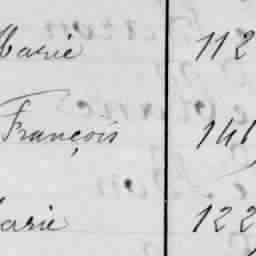 Marie 112
François 146
Marie 122